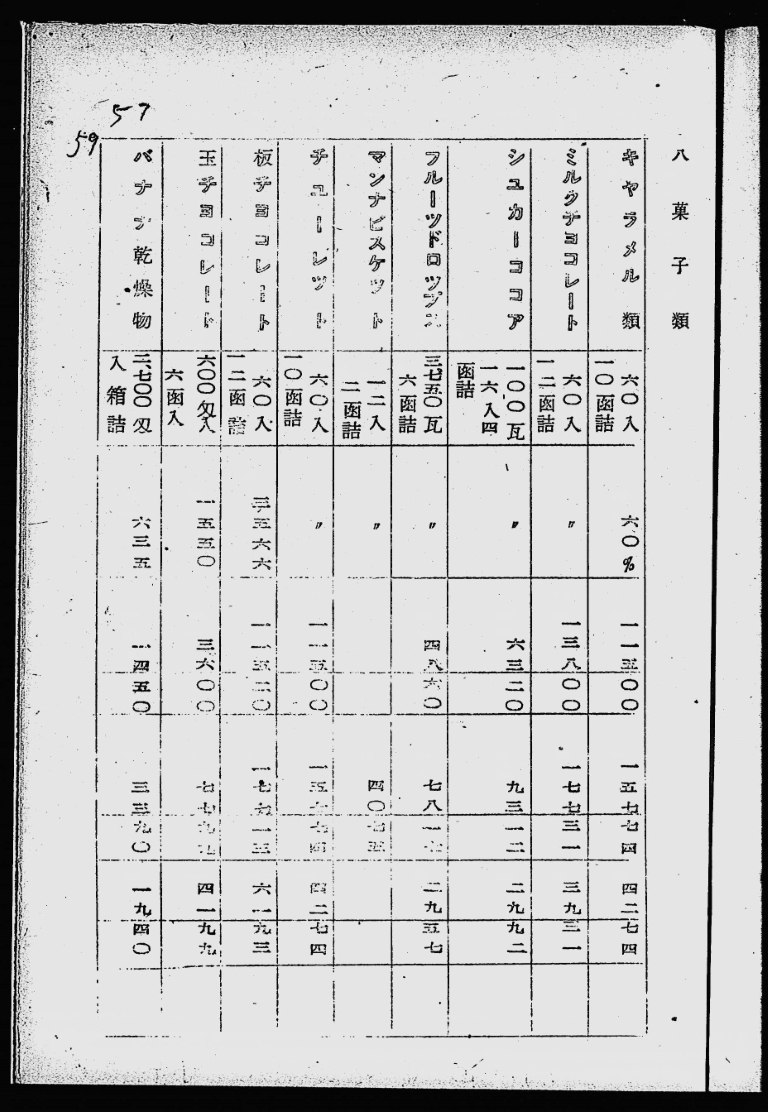 57
59
八 菓子類
キャラメル類 六〇入 一〇函詰 六〇% 一一五〇〇 一五七七四 四二七四
ミルクチョコレート 六〇入 一二函詰 〃 一三八〇〇 一七七三一 三九三一
シュカーココア 一〇〇瓦 一六入四 函詰 〃 六三二〇 九三一二 二九九二
フルーツドロップス 三、七五〇瓦 六函詰 〃 四八六〇 七八一七 二九五七
マンナビスケット 一二入 二函詰 〃 四〇七五
チューレット 六〇入 一〇函詰 〃 一一五〇〇 一五七七四 四二七四
板チョコレート 六〇入 一二函詰 五六六 一一五二〇 一七七一三 六一九三
玉チョコレート 六〇〇匁入 六函入 一五五〇 三六〇〇 七七九九 四一九九
バナナ乾燥物 二、七〇〇匁 入箱詰 六三五 一四五〇 三三九〇 一九四〇